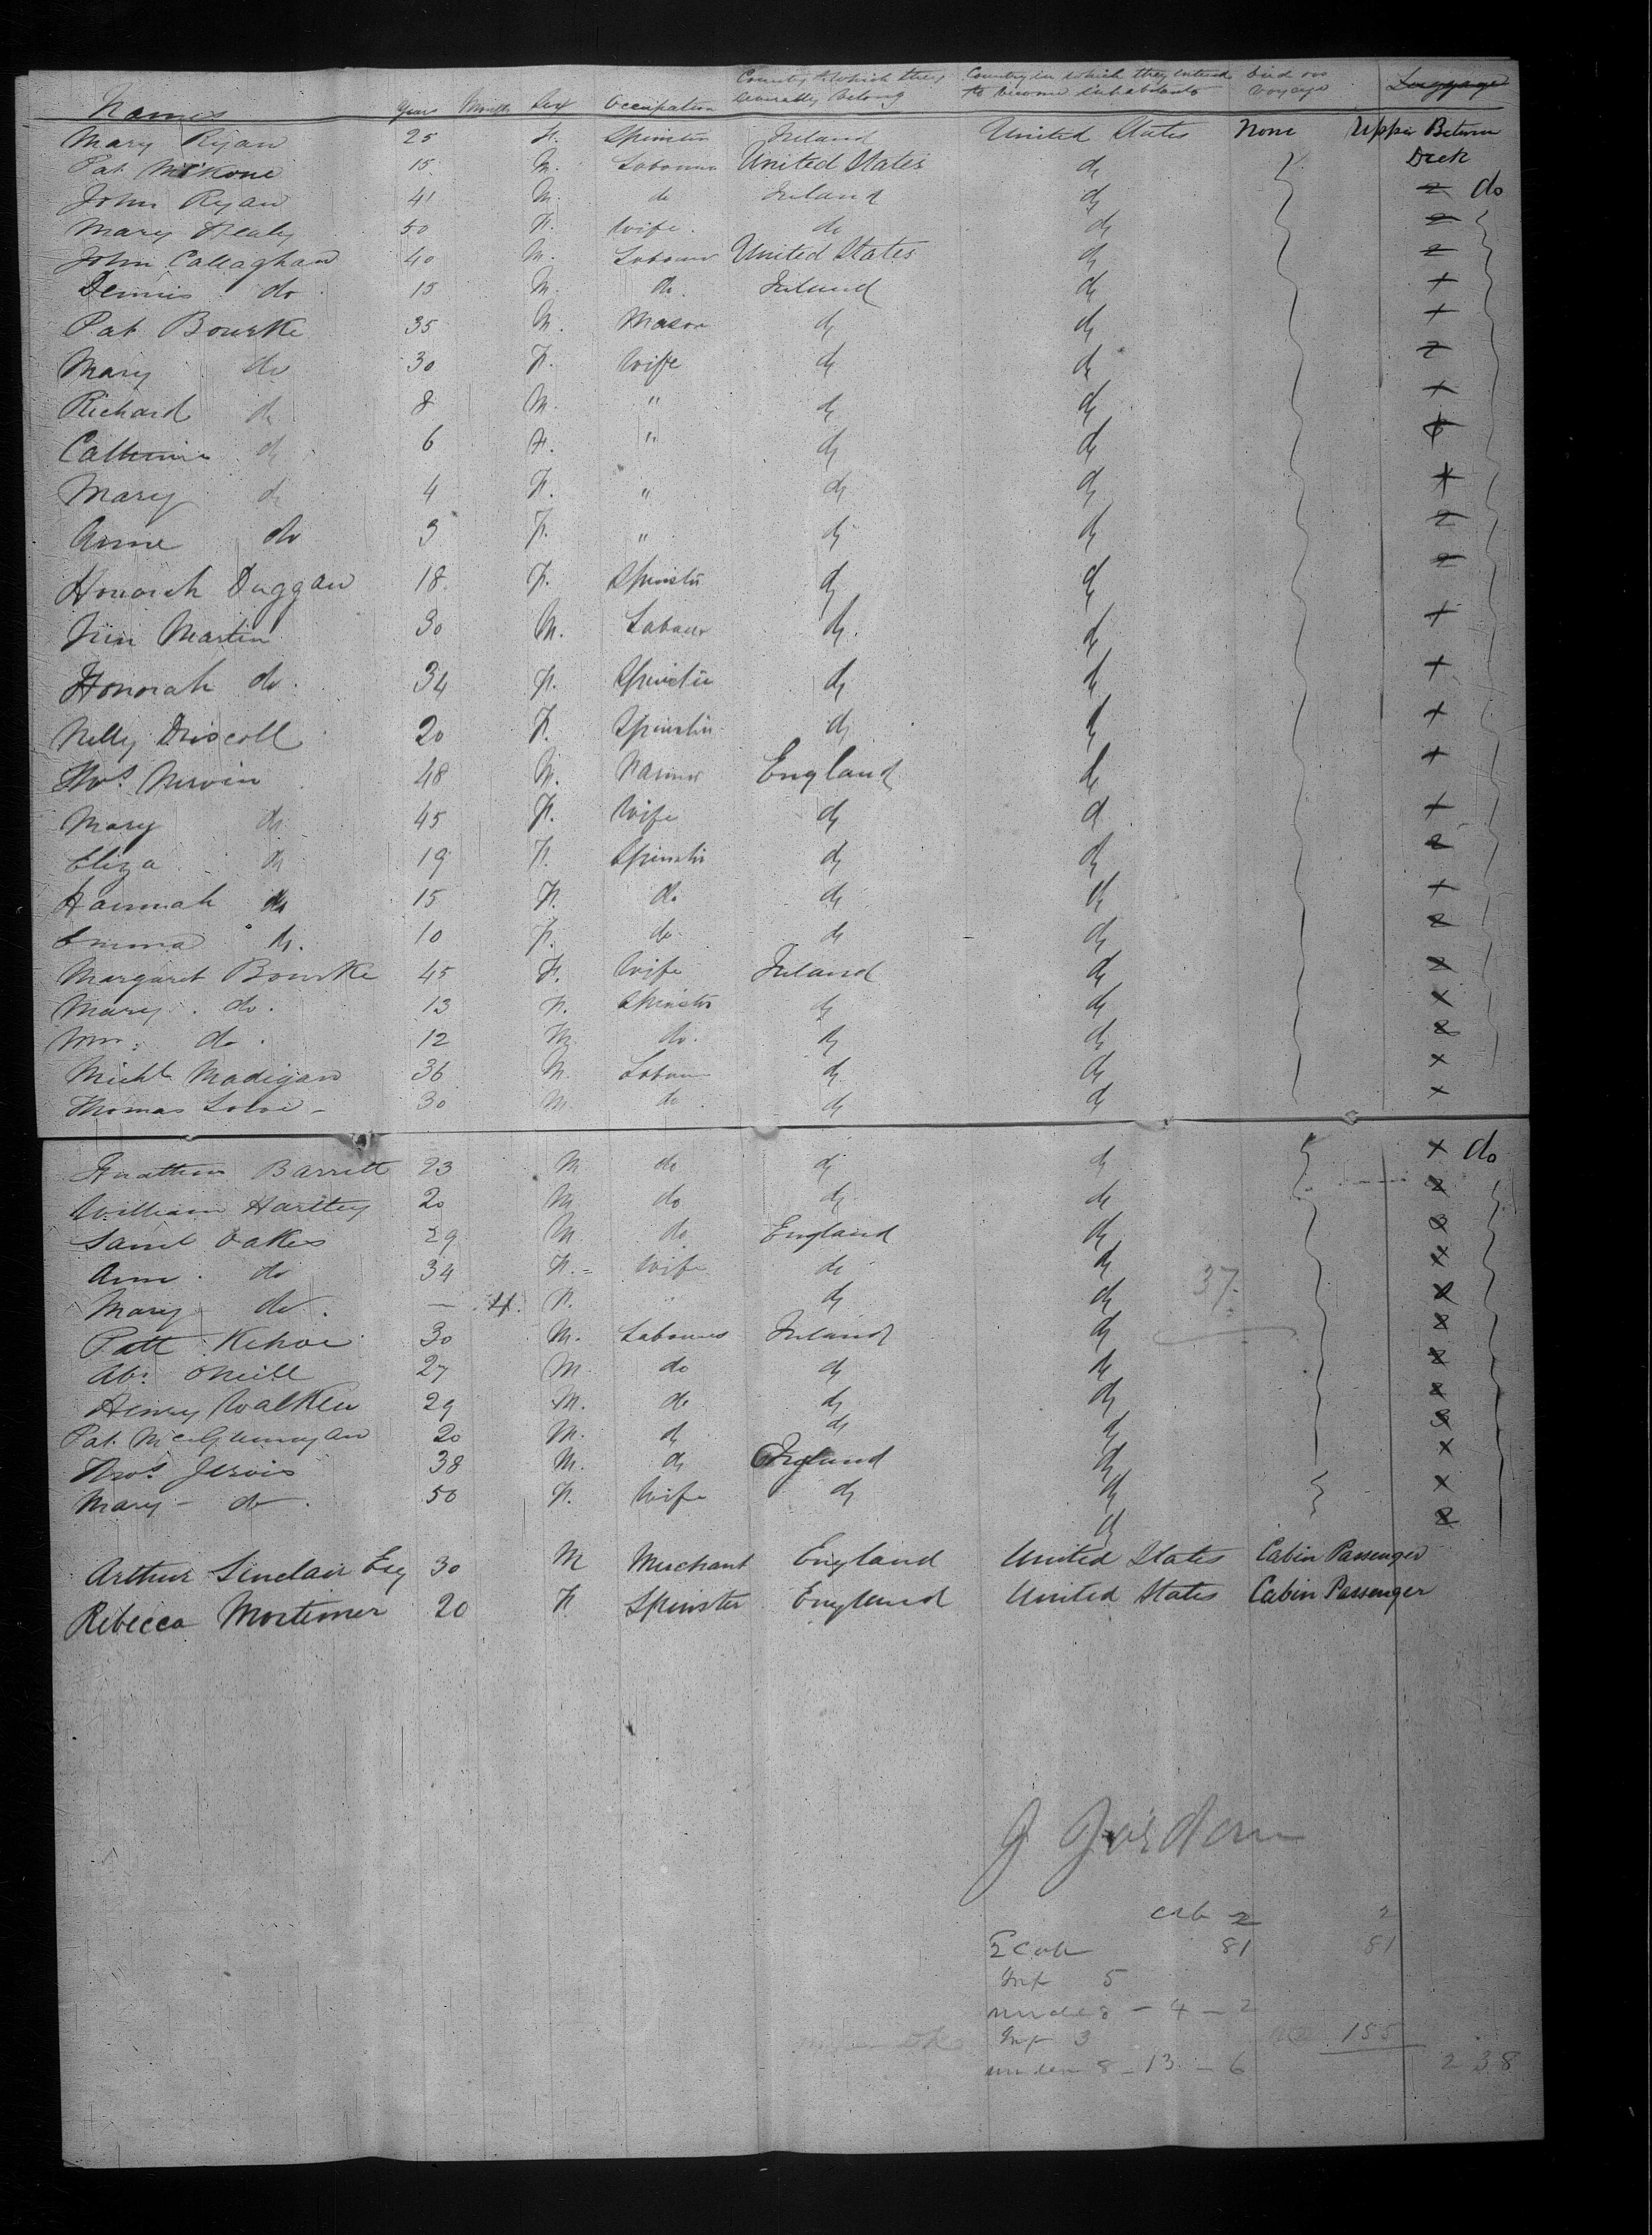 Names Years Months Sex Occupation Country to which they severally belong Country in which they intend to become inhabitants Died on voyage Luggage
Mary Ryan 25 F. Spinster Ireland United States None Upper Between
Pat McKone 15 M. Labourer United States do Deck
John Ryan 41 M. do Ireland do 2 do
Mary Healy 50 F. Wife. do do 2
John Callaghan 40 M. Labourer United States do 2
Dennis do 15 M. do. Ireland do
Pat Bourke 35 M. Mason do do
Mary do 30 F. Wife do do 2
Richard do 8 M. " do do
Catherine do 6 F. " do do
Mary do 4 F. " do do
Anne do 3 F. " do do 2
Honorah Duggan 18 F. Spinster do do 2
Jim Martin 30 M. Labour do. do
Honorah do. 34 F. Spinster do do
Nelly Driscoll 20 F. Spinster do do
Thos. 48 M. England do
Mary do 45 F. Wife do do
Eliza do 19 F. Spinster do do 2
Hannah do 15 F. do. do do
Emma do. 10 F. do. do do 2
Margaret Bourke 45 F. Wife Ireland do 2
Mary. do. 13 F. Spinster do do
Wm: do. 12 M do. do do 2
Michl Madigan 36 M. Labour do do
Thomas 30 M do do do
Barrett 23 M do do do do
William Hartley 20 M do do do 2
Saml Oakes 29 M do England do
Ann. do 34 F. Wife do do
Mary do. — 4. F. do do 37
Patt Kehoe 30 M. Labourer Ireland do 2
Ab: ONeill 27 M do do do 2
Henry Walker 29 M. do do do 2
Pat. 20 M. do do do 3
Thos. Jervis 38 M. do England do
Mary - do. 50 F. Wife do do
do 2
Arthur Sinclair Esq 30 M Merchant England United States Cabin Passenger
Rebecca Mortimer 20 F Spinster England United States Cabin Passenger
J Jordan
cab 2 2
2 Cab 81 81
Inf 5
under 8 - 4 - 2
Inf 3 155
under 8 - 13 - 6 238